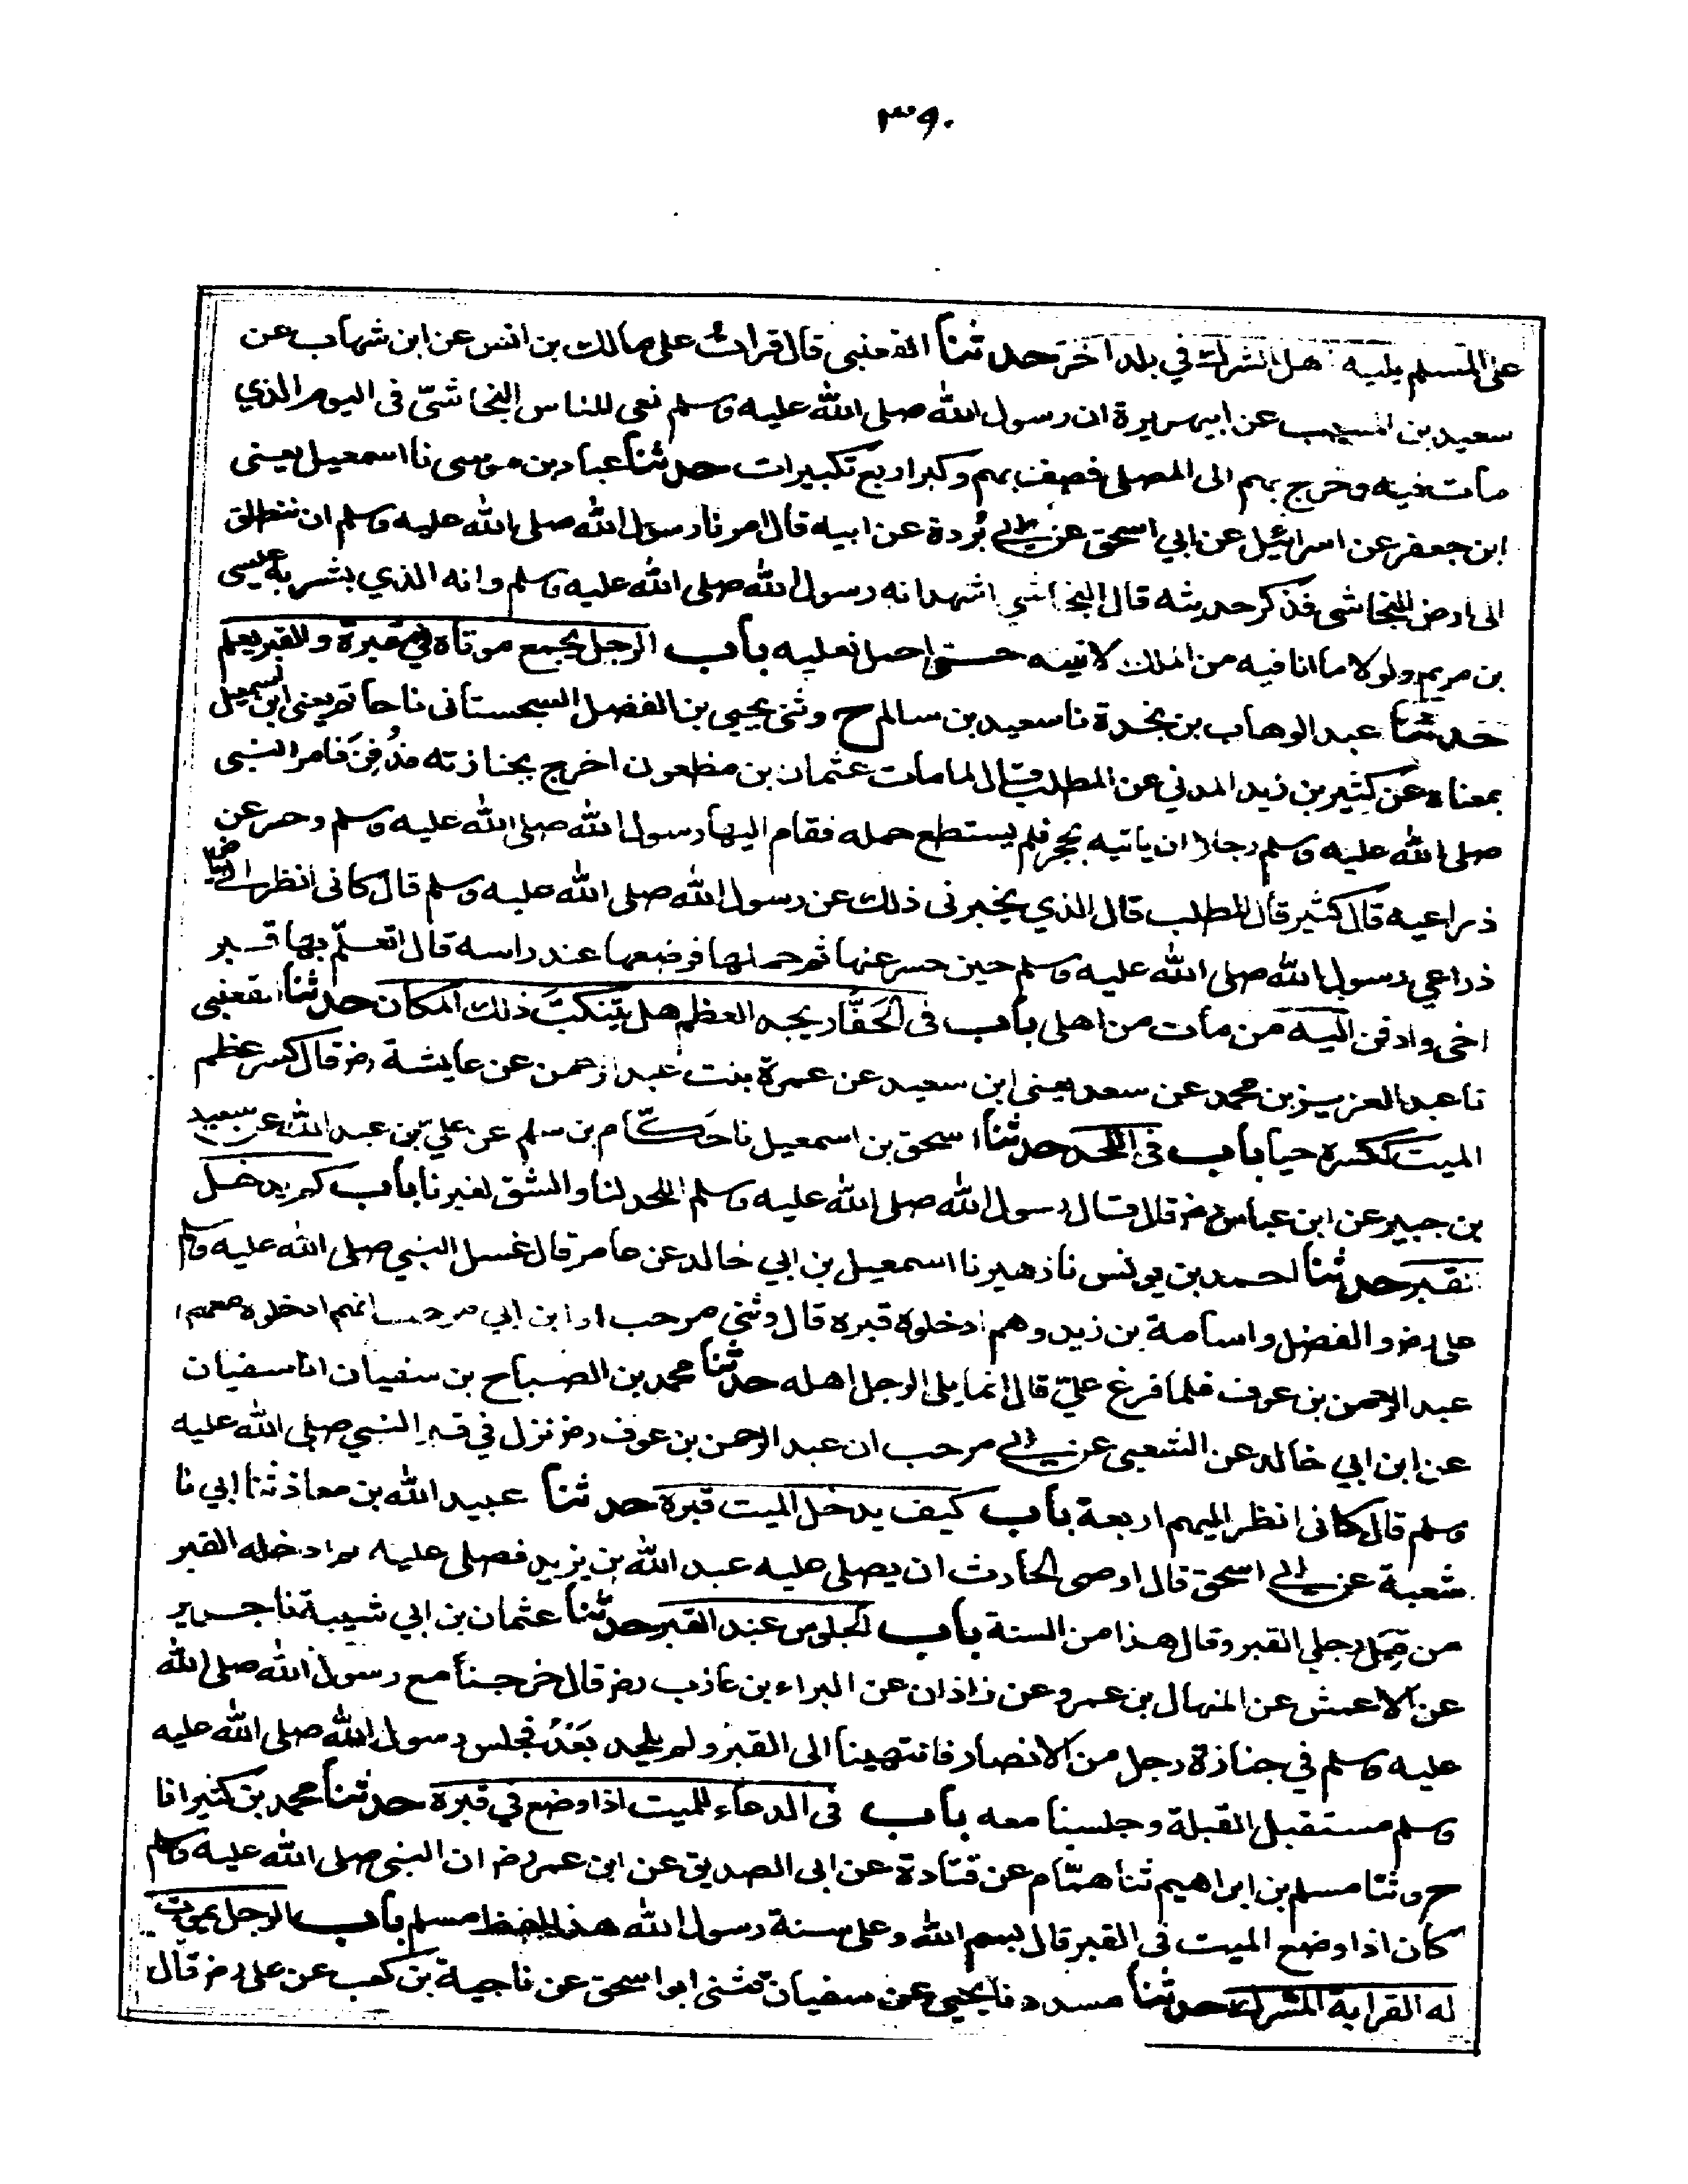 ٣٩٠
على المسلم يليه هل الشرك في بلد اخر حدثنا القعنبى قال قرات على مالك بن انس عن ابن شهاب عن
سعيد بن المسيب عن ابى هريرة ان رسول الله صلى الله عليه وسلم نعى للناس النجاشىّ فى اليوم الذي
مات فيه وخرج بهم الى المصلى فصف بهم وكبر اربع تكبيرات حدثنا عباد بن موسى نا اسمعيل يعنى
ابن جعفر عن اسرائيل عن ابي اسحق عن ابي بُردة عن ابيه قال امرنا رسول الله صلى الله عليه وسلم ان ننطلق
الى ارض النجاشى فذكر حديثه قال النجاشي اشهد انه رسول الله صلى الله عليه وسلم وانه الذي بشر به عيسى
بن مريم ولولا ما انا فيه من الملك لاتيته حتى احمل نعليه باب الرجل يجمع موتاه في مقبرة والقبر يعلم
حدثنا عبد الوهاب بن نجدة نا سعيد بن سالم ح وثنى يحيى بن الفضل السجستانى نا حاتم يعنى ابن اسمعيل
بمعناه عن كثير بن زيد المدني عن المطلب قال لما مات عثمان بن مظعون اخرج بجنازته فدُفِنَ فامر النبى
صلى الله عليه وسلم رجلا ان ياتيه بحجر فلم يستطع حمله فقام اليها رسول الله صلى الله عليه وسلم وحسر عن
ذراعيه قال كثير قال المطلب قال الذي يخبرنى ذلك عن رسول الله صلى الله عليه وسلم قال كانى انظر الى بياض
ذراعي رسول الله صلى الله عليه وسلم حين حسر عنها ثم حملها فوضعها عند راسه قال اتعلّم بها قبر
اخى وادفن اليه من مات من اهلى باب فى الحَفّار يجد العظم هل يتنكبَ ذلك المكان حدثنا القعنبى
نا عبد العزيز بن محمد عن سعد يعنى ابن سعيد عن عمرة بنت عبد الرحمن عن عايشة رضـ قال كسر عظم
الميت ككسره حيا باب فى اللحد حدثنا اسحق بن اسمعيل نا حَكّام بن سلم عن علي بن عبد الله عن سعيد
بن جبير عن ابن عباس رضـ قال قال رسول الله صلى الله عليه وسلم اللحد لنا والشق لغيرنا باب كم يدخل
القبر حدثنا احمد بن يونس نا زهير نا اسمعيل بن ابي خالد عن عامر قال غسل النبي صلى الله عليه وسلم
على رضـ والفضل واسامة بن زيد وهم ادخلوه قبره قال وثنى مرحب او ابن ابي مرحب انهم ادخلوه معهم
عبد الرحمن بن عوف فلما فرغ عليّ قال انما يلى الرجل اهله حدثنا محمد بن الصباح بن سفيان انا سفيان
عن ابن ابي خالد عن الشعبى عن ابي مرحب ان عبد الرحمن بن عوف رضـ نزل في قبر النبي صلى الله عليه
وسلم قال كانى انظر اليهم اربعة باب كيف يدخل الميت قبره حدثنا عبيد الله بن معاذ ثنا ابي نا
شعبة عن ابي اسحق قال اوصى الحارث ان يصلى عليه عبد الله بن يزيد فصلى عليه ثم ادخله القبر
من قِبَل رجلي القبر وقال هذا من السنة باب الجلوس عند القبر حدثنا عثمان بن ابي شيبة ثنا جرير
عن الاعمش عن المنهال بن عمرو عن زاذان عن البراء بن عازب رضـ قال خرجنا مع رسول الله صلى الله
عليه وسلم في جنازة رجل من الانصار فانتهينا الى القبر ولم يلحد بَعْدُ فجلس رسول الله صلى الله عليه
وسلم مستقبل القبلة وجلسنا معه باب فى الدعاء للميت اذا وضع في قبره حدثنا محمد بن كثير انا
ح وثنا مسلم بن ابراهيم ثنا همّام عن قتادة عن ابى الصديق عن ابن عمر رضـ ان النبى صلى الله عليه وسلم
كان اذا وضع الميت فى القبر قال بسم الله وعلى سنة رسول الله هذا لفظ مسلم باب الرجل يموت
له القرابة المشرك حدثنا مسدد نا يحيى عن سفيان ثنى ابو اسحق عن ناجية بن كعب عن على رضـ قال